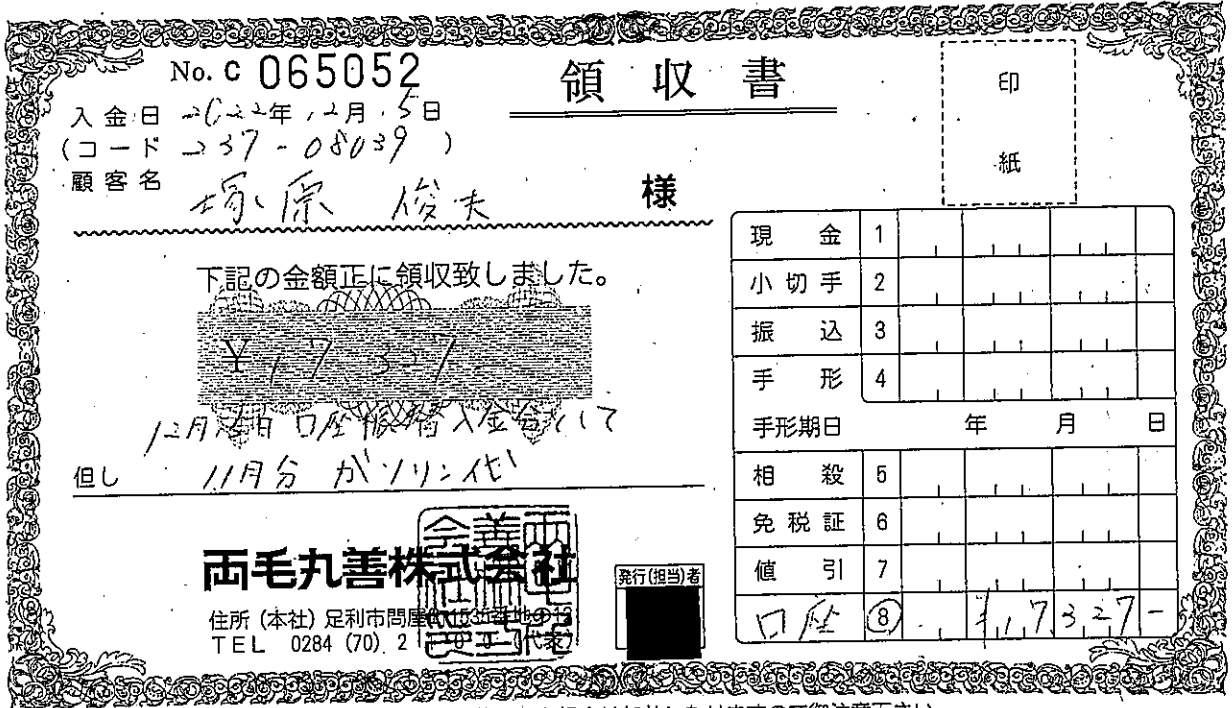 No. C 065052
領収書
印
紙
入金日 2022年12月5日
(コード 237-08039)
顧客名
塚原 俊夫 様
下記の金額正に領収致しました。
¥17327
12月5日 口座振替入金分として
但し 11月分 ガソリン代
両毛丸善株式会社
住所 (本社) 足利市問屋
TEL 0284 (70) 2
代表)
発行(担当)者
現金 1
小切手 2
振込 3
手形 4
手形期日 年 月 日
相殺 5
免税証 6
値引 7
口座 8 ¥17327-